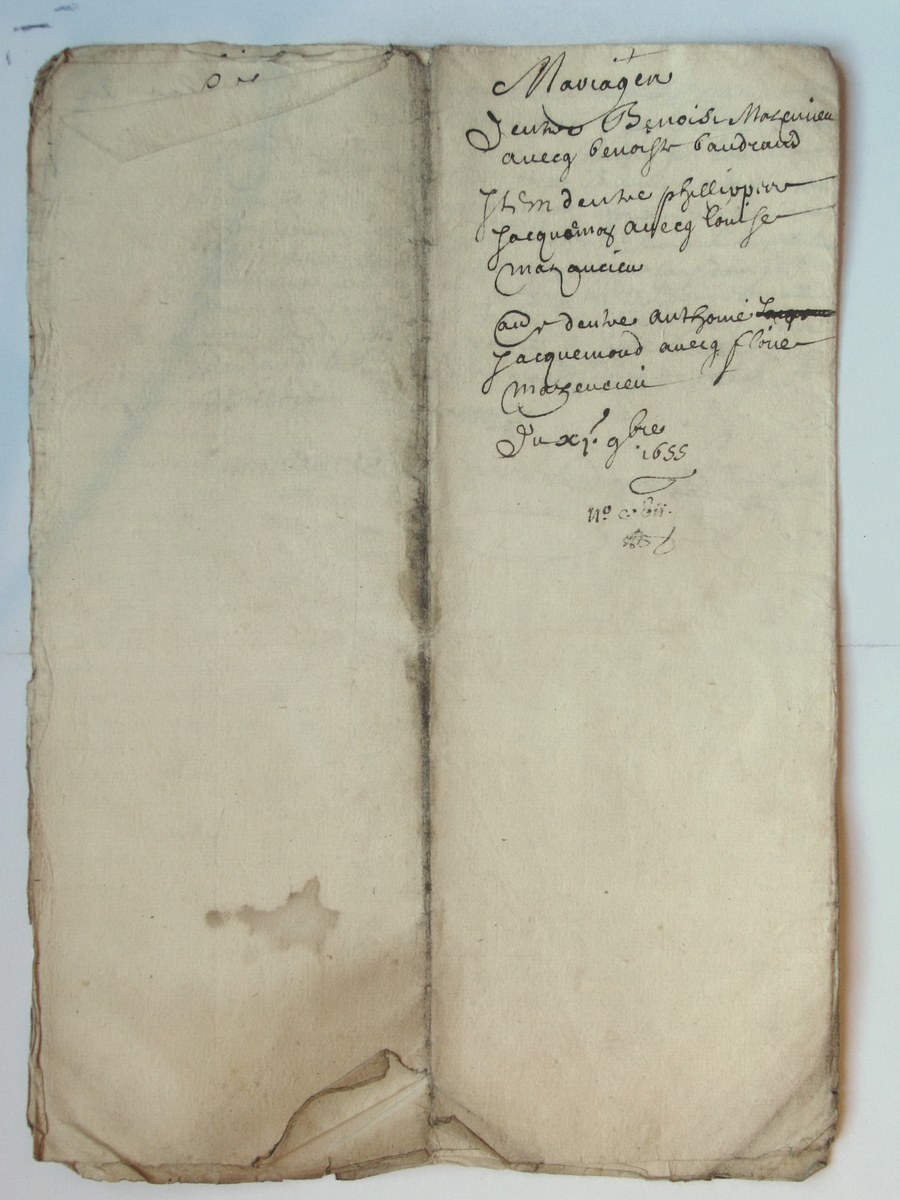 Mariages
Dentre Benoist Mazencieu
avecq benoiste baudrand
Item dentre phillippes
Jacquemoz avecq louise
mazancieu
and r dentre anthoine
Jacquemond avecq florie
mazencieu
Du xj.e 9bre
1655
n.o